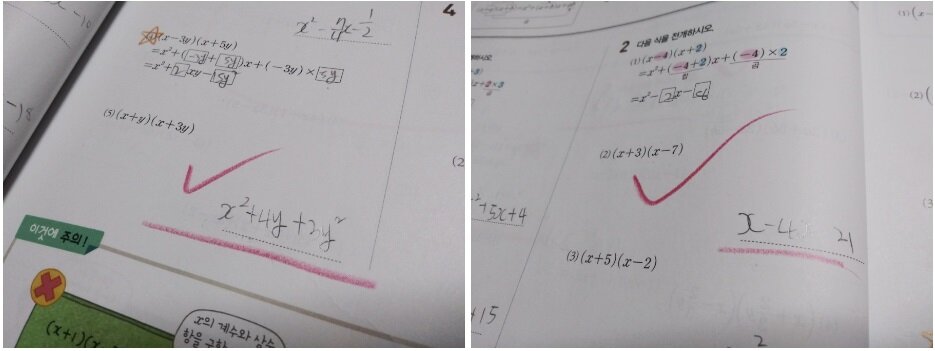 4
x² -
(x-3y)(x+5y)
=x²+(-3y+5y)x+(-3y)×5y
=x²+2xy-15y²
(5) (x+y)(x+3y)
x²+4y+3y²
이것에 주의!
(x+1)(x
x의 계수와 상수
항을 구할
(2
2 다음 식을 전개하시오.
(1) (x-4)(x+2)
=x²+(-4+2)x+(-4)×2
합 곱
=x²-2x-8
(2) (x+3)(x-7)
x-4x 21
(3) (x+5)(x-2)
+5x+4
+15
2
(1)
(2)
(3